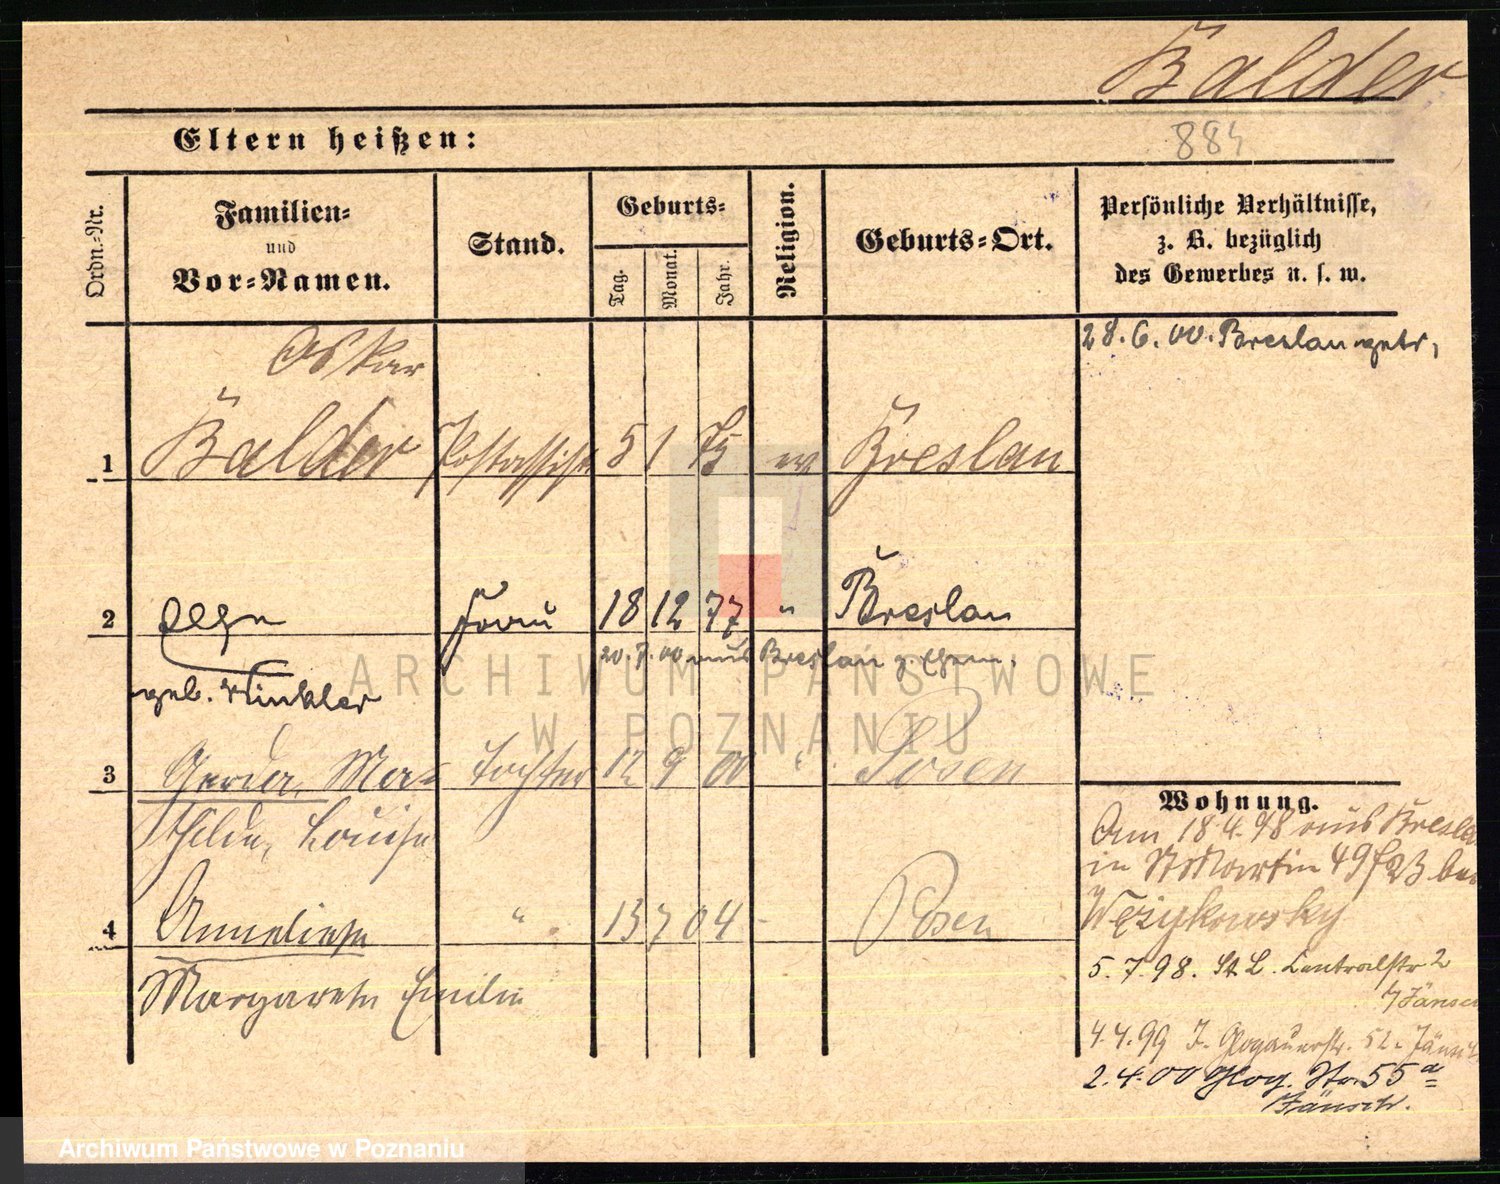 Balder
Eltern heißen: 884
Ordn.=Nr.
Familien=
und
Vor=Namen.
Stand.
Geburts=
Tag.
Monat.
Jahr.
Religion.
Geburts=Ort.
Persönliche Verhältnisse,
z. B. bezüglich
des Gewerbes u. s. w.
28. 6. 00. Breslau getr,
Oskar
1 Balder Postassist 5 1 75 ev Breslau
2 Olga Frau 18 12 77 " Breslau
20. 7. 00 aus Breslau z.
geb. Winkler
3 Gerda, Ma= Tochter 12 9 00 " Posen
thilde, Louise
4 Anneliese " 13 7 04 - Posen
Margarete Emilie
Wohnung.
Am 18 4. 98 aus Breslau
in St Martin 49 bei
Wezykowsky
5. 7. 98. St L. Centralstr 2
b/Jänsch
4. 4. 99 J. Glogauerstr. 52. Jänsch
2. 4. 00 Glog. Str. 55 a
Jänsch.
ARCHIWUM PAŃSTWOWE
W POZNANIU
Archiwum Państwowe w Poznaniu